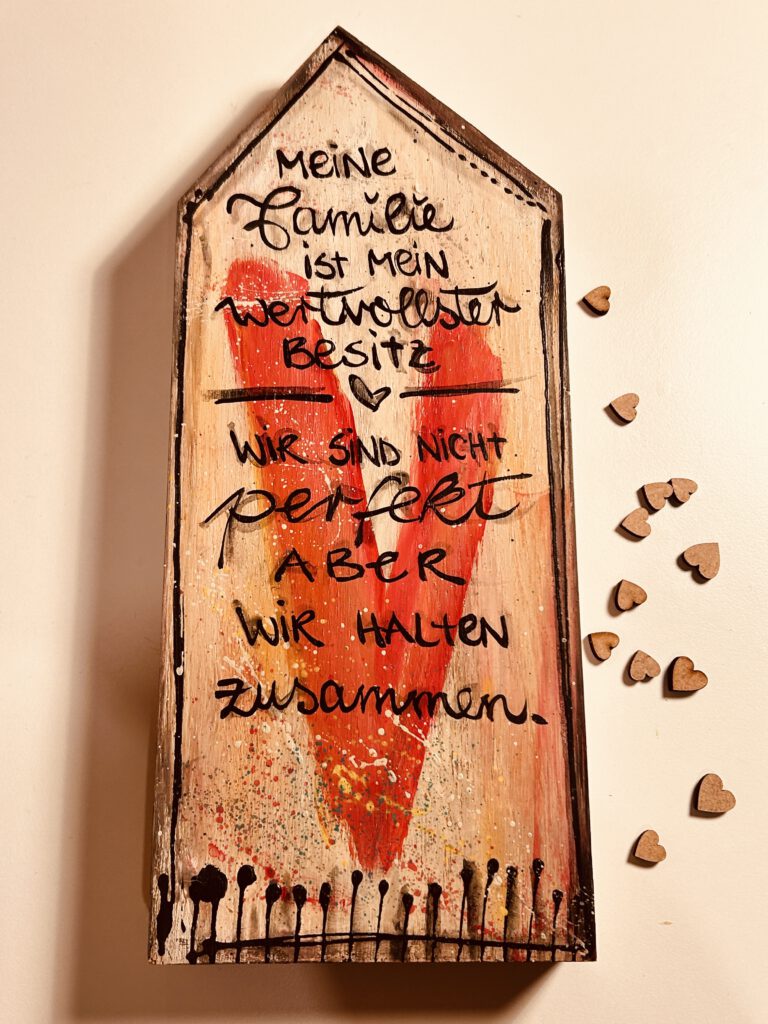 MEiNE
Familie
iST MEiN
wertvollster
BesiTZ
WiR SiND NiCHT
perfekt
ABeR
WiR HALTEN
zusammen.